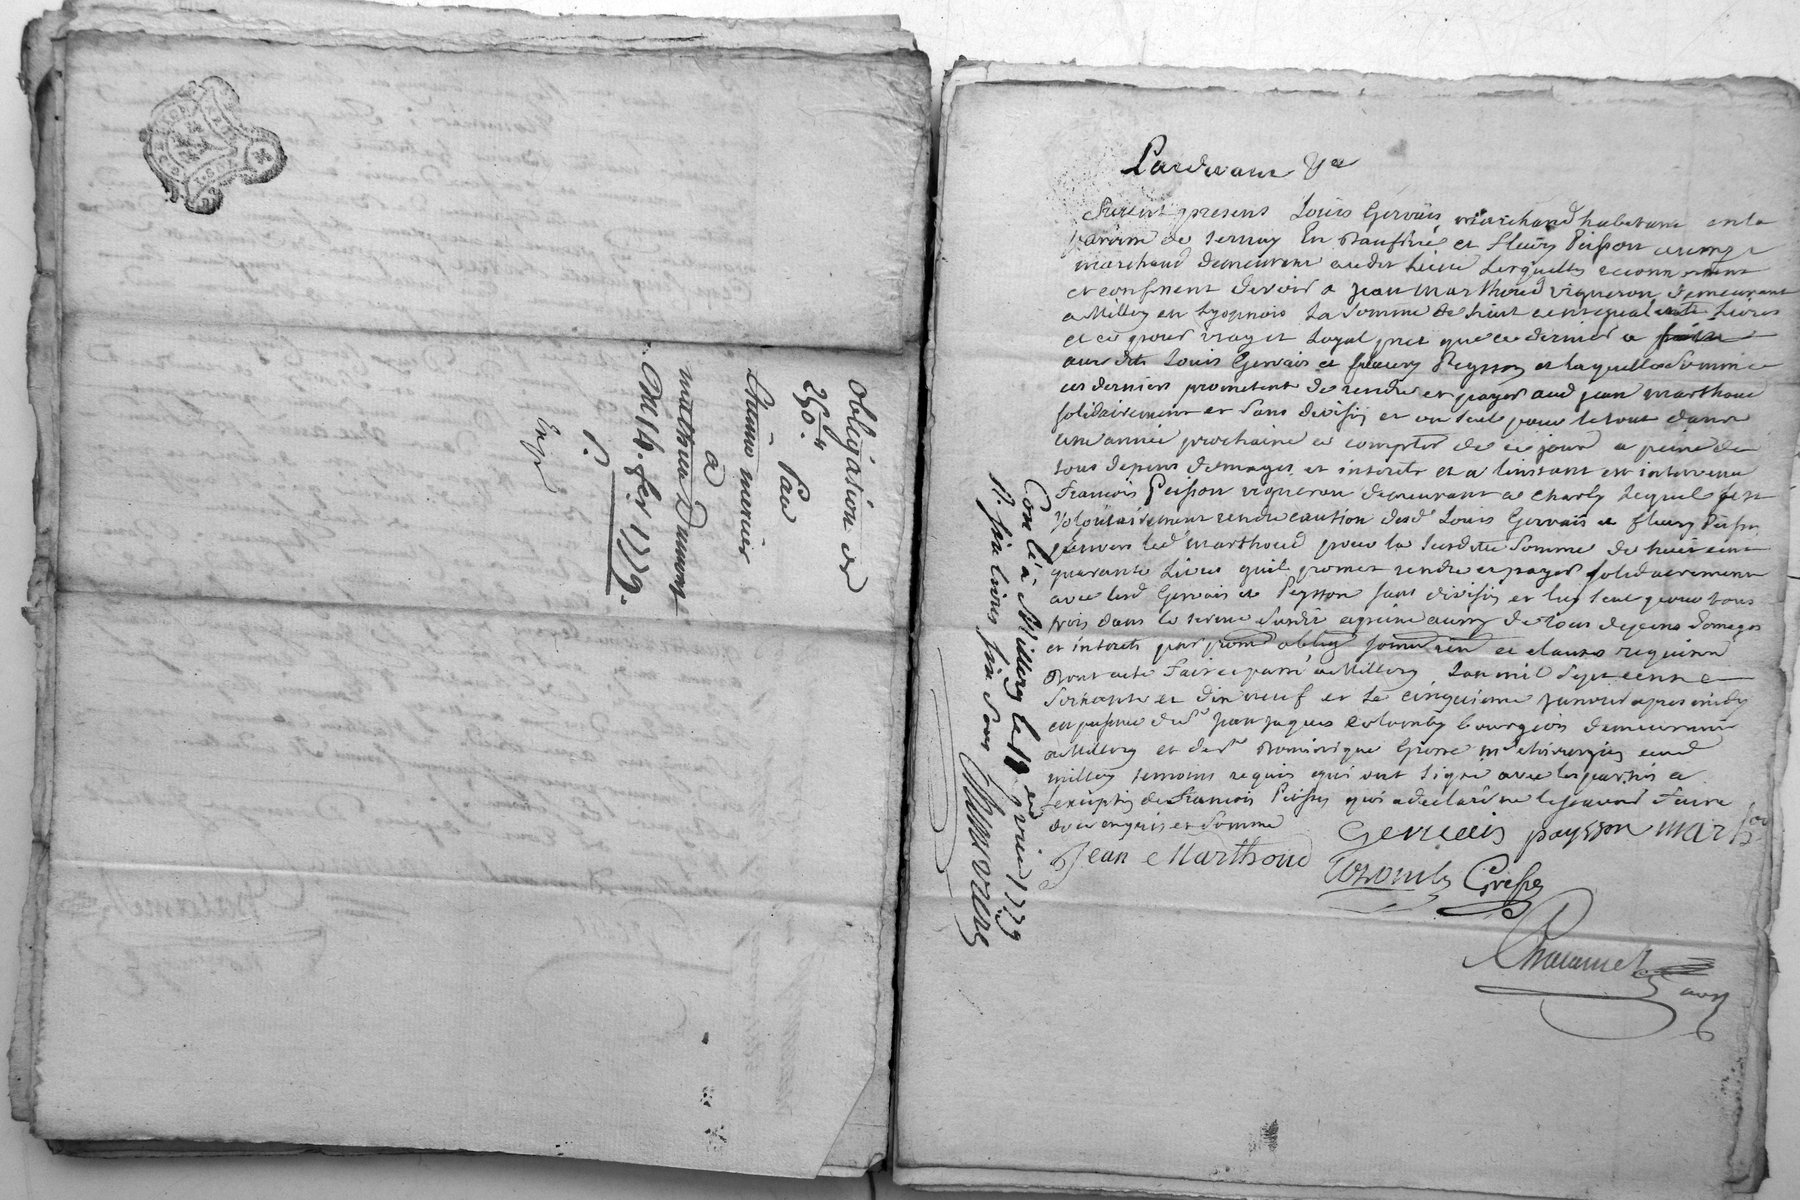 obligasion de
250 ₶
Par
Etienne mercier
a
mathieu Dumont
Du 16. fev. 1779.
Pardevant
Furent present Louis Gervais marchand habitant en la
paroisse de Sernay En Dauphiné et fleury Peisson aussy
marchand demeurant audit Lieu Lesquells reconnoissent
et confessent devoir a jean marthoud vigneron demeurant
a Millery en Lyonnois La Somme de huit cent quarante Livres
et ce pour vray et Loyal pret que ce dernier a
aux dits Louis Gervais et fleury Peysson et laquelle Somme
ces derniers promettent de rendre et payer aud jean marthoud
solidairement et sans divisi et un seul pour le tout dans
une année prochaine a compter de ce jour a peine de
tous depens domages et interets et a linstant est intervenu
Francois Peisson vigneron demeurant a Charly Lequel s'est
volontairement rendu caution desd Louis Gervais et fleury Peisson
envers led marthoud pour la susditte Somme de huit cent
quarante Livres quil promet rendre et payer solidairement
avec lesd Gervais et Peysson sans divisi et luy seul pour tous
trois dans le terme susdit a peine aussy de tous depens domages
et interets par prom oblig soum ren et clauses requises
Dont acte Fait et passé a Millery Lan mil Sept cent
Soixante et dix neuf et le cinquieme janvier apres midy
en presence de Sr jean jaques Colomby bourgeois demeurant
a Millery et de Sr Dominique Gresse me chirurgien aud
millery temoins requis qui ont signé avec les parties a
lexception de Francois Peisson qui a declaré ne le scavoir Faire
de ce enquis et Sommé
Gervais paysson marthoud
Jean Marthoud
Colomby Gresse
Chalamel
Con lé a Millery le 19 janvier 1779